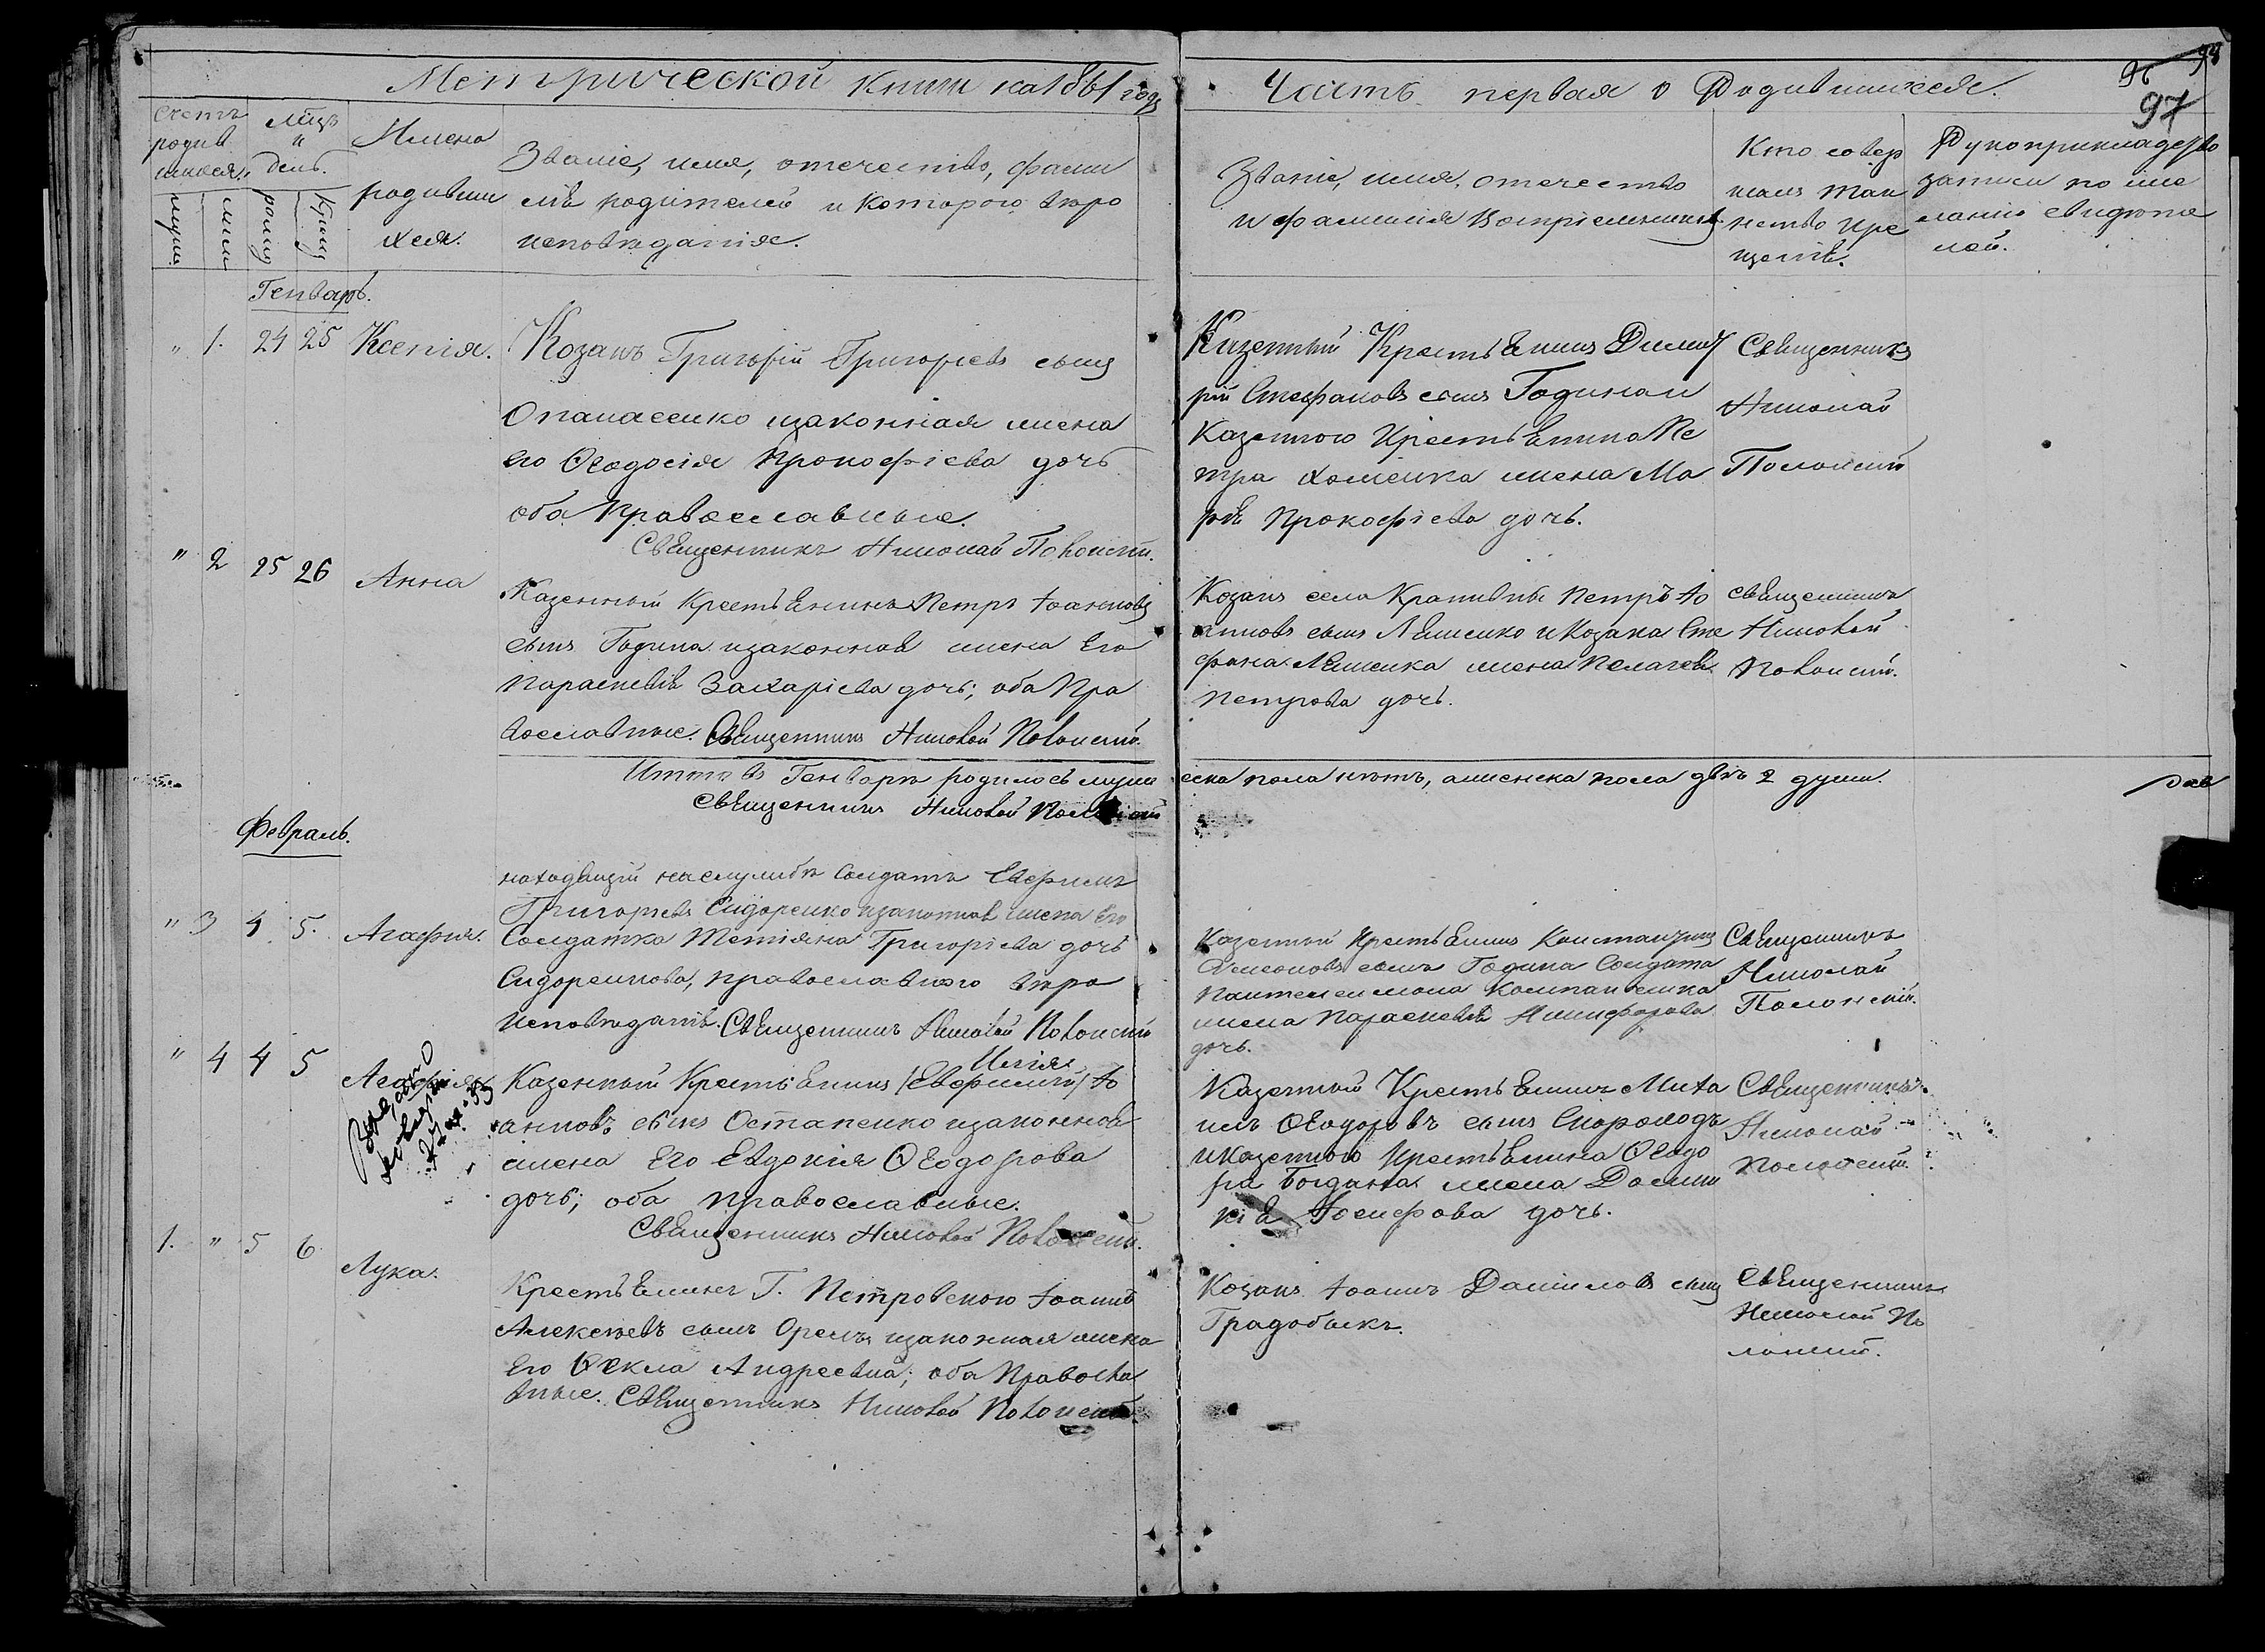 Метрической книги на 1861 годъ
Часть первая о Родившихся.
96
97
Счетъ родившихся
Мсцъ и день.
Имена родившихся.
Званіе, имя, отечество, фами
ліѣ родителей и которого вѣро
исповѣданія.
Званіе, имя, отечество
и фамилія Воспріемниковъ
Кто совер
шалъ таи
нство кре
щеніѣ.
Рукоприкладство
записи по же
ланію свидѣте
лей.
Генварь.
" 1. 24 25 Ксенія.
Козакъ Григорій Григоріевъ сынъ
Опанасенко изаконная жена
его Ѳеодосія Прокофіева дочь
оба Православные.
Священникъ Николай Полонскій.
Казенный Крестьянинъ Димит
рій Стефановъ сынъ Година и
Казенного Крестьянина Пе
тра Хоменка жена Ма
рія Прокофіева дочь.
Священникъ
Николай
Полонскій
" 2 25 26 Анна
Казенный Крестьянинъ Петръ Іоанновъ
сынъ Година изаконная жена Его
Параскевія Захаріева дочь; оба Пра
вославные. Священникъ Николай Полонскій.
Козакъ села Крапивны Петръ Іо
анновъ сынъ Ляшенко и Козака Сте
фана Ляшенка жена Пелагея
Петрова дочь.
Священникъ
Николай
Полонскій.
Итого въ Генварѣ родилось мужеска пола нѣтъ, а женска пола двѣ 2 души.
Священникъ Николай Полонскій
Февраль.
" 3 4 5. Агафія.
находящій на службѣ Солдатъ Евфимъ
Григорьевъ Сидоренко изаконная жена Его
Солдатка Татіяна Григоріева дочь
Сидоренкова, православного вѣро
исповѣданія. Священникъ Николай Полонскій
Казенный Крестьянинъ Константинъ
Симеоновъ сынъ Година Солдата
Пантелеимона Компанейка
жена Параскевія Никифорова
дочь.
Священникъ
Николай
Полонскій.
" 4 4 5 Агафія
Илія
Казенный Крестьянинъ /Евфимій/ Іо
анновъ сынъ Остапенко изаконная
жена Его Евдокія Ѳеодорова
дочь; оба православные.
Священникъ Николай Полонскій.
Казенный Крестьянинъ Миха
илъ Ѳеодоровъ сынъ Скороходъ
и Казенного Крестьянина Ѳеодо
ра Богдана жена Домни
кія Іосифова дочь.
Священникъ
Николай
Полонскій
1. " 5 6 Лука.
Крестьянинъ Г. Петровского Іоаннъ
Алексѣевъ сынъ Орелъ изаконная жена
Его Ѳекла Андреевна; оба Правосла
вные. Священникъ Николай Полонскій
Козакъ Іоаннъ Даниловъ сынъ
Градобыкъ.
Священникъ
Николай По
лонскій.